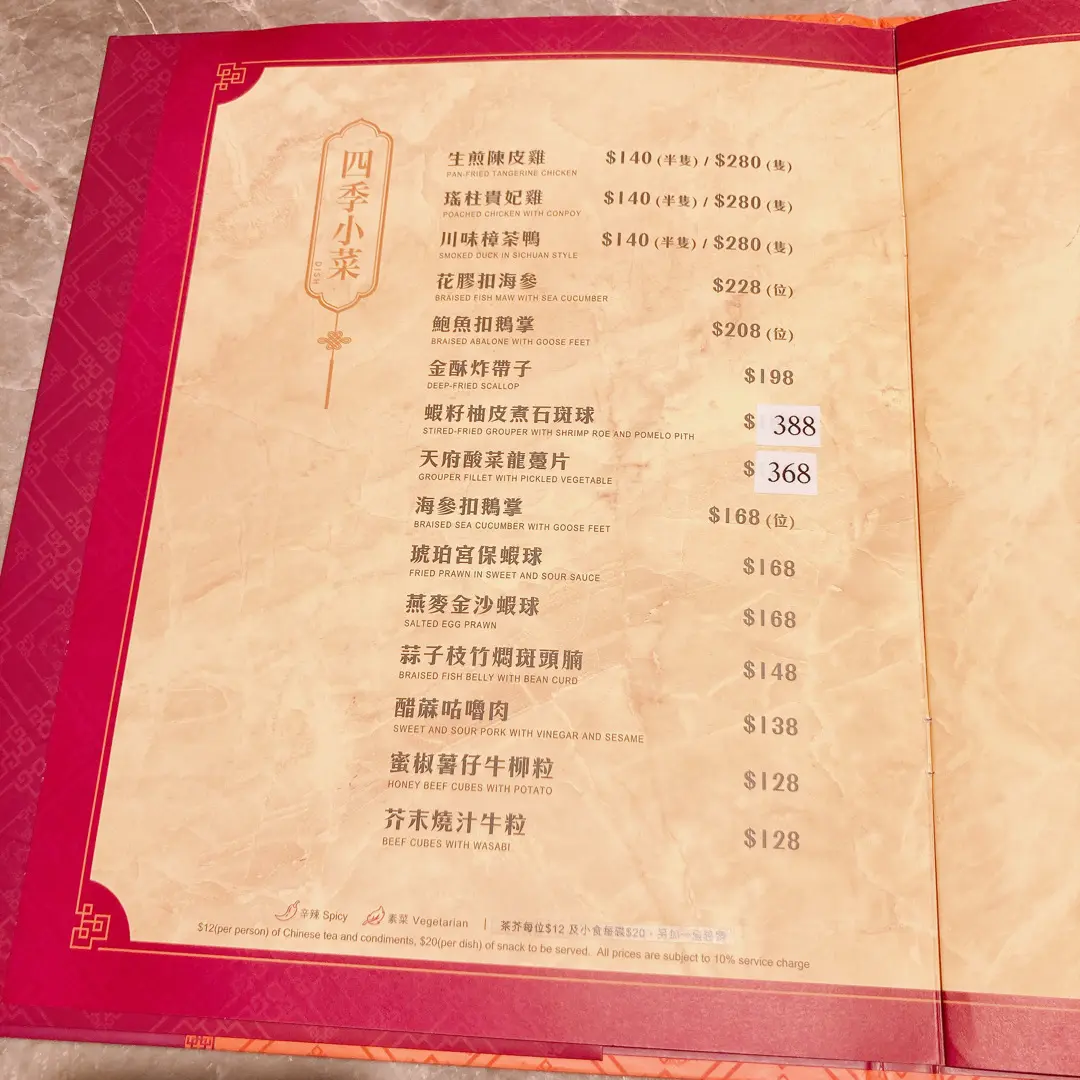 四季小菜
DISH
生煎陳皮雞 $140 (半隻) / $280 (隻)
PAN-FRIED TANGERINE CHICKEN
瑤柱貴妃雞 $140 (半隻) / $280 (隻)
POACHED CHICKEN WITH CONPOY
川味樟茶鴨 $140 (半隻) / $280 (隻)
SMOKED DUCK IN SICHUAN STYLE
花膠扣海參 $228 (位)
BRAISED FISH MAW WITH SEA CUCUMBER
鮑魚扣鵝掌 $208 (位)
BRAISED ABALONE WITH GOOSE FEET
金酥炸帶子 $198
DEEP-FRIED SCALLOP
蝦籽柚皮煮石斑球 $ 388
STIRED-FRIED GROUPER WITH SHRIMP ROE AND POMELO PITH
天府酸菜龍躉片 $ 368
GROUPER FILLET WITH PICKLED VEGETABLE
海參扣鵝掌 $168 (位)
BRAISED SEA CUCUMBER WITH GOOSE FEET
琥珀宮保蝦球 $168
FRIED PRAWN IN SWEET AND SOUR SAUCE
燕麥金沙蝦球 $168
SALTED EGG PRAWN
蒜子枝竹燜斑頭腩 $148
BRAISED FISH BELLY WITH BEAN CURD
醋蔴咕嚕肉 $138
SWEET AND SOUR PORK WITH VINEGAR AND SESAME
蜜椒薯仔牛柳粒 $128
HONEY BEEF CUBES WITH POTATO
芥末燒汁牛粒 $128
BEEF CUBES WITH WASABI
辛辣 Spicy 素菜 Vegetarian | 茶芥每位$12 及小食每碟$20，另加一服務費
$12(per person) of Chinese tea and condiments, $20(per dish) of snack to be served. All prices are subject to 10% service charge